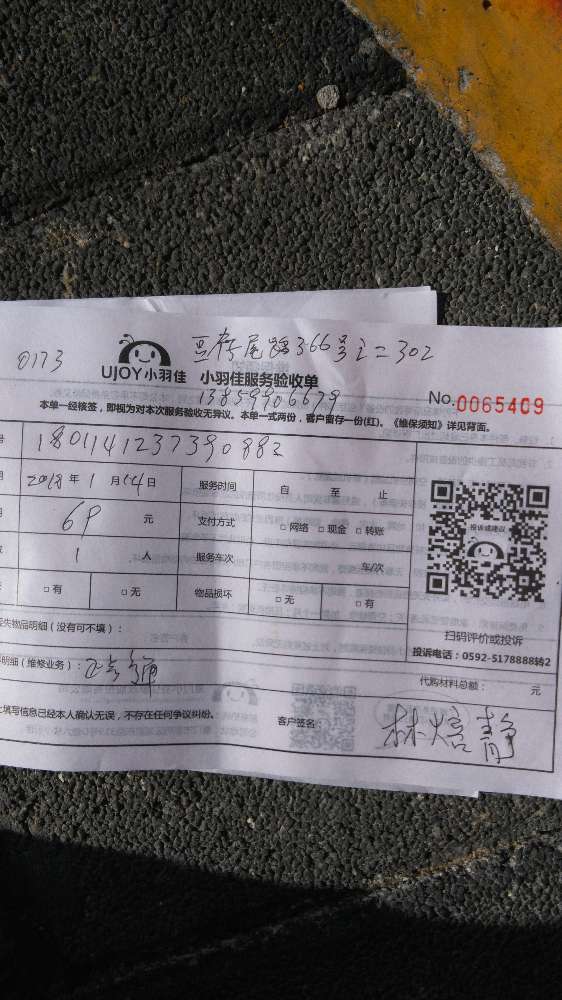 0173
UJOY小羽佳 小羽佳服务验收单
366号之二302
13859906679
No.0065409
本单一经核签，即视为对本次服务验收无异议。本单一式两份，客户留存一份(红)。《维保须知》详见背面。
号 1801141237390882
期 2018年1月14日 服务时间 自 至 止
69元 支付方式 □网络 □现金 □转账
1人 服务车次 车/次
□有 □无 物品损坏 □无 □有
投诉或建议
扫码评价或投诉
投诉电话：0592-5178888转2
损失物品明细（没有可不填）：
明细（维修业务）：
代购材料总额： 元
填写信息已经本人确认无误，不存在任何争议纠纷。 客户签名： 林焙静